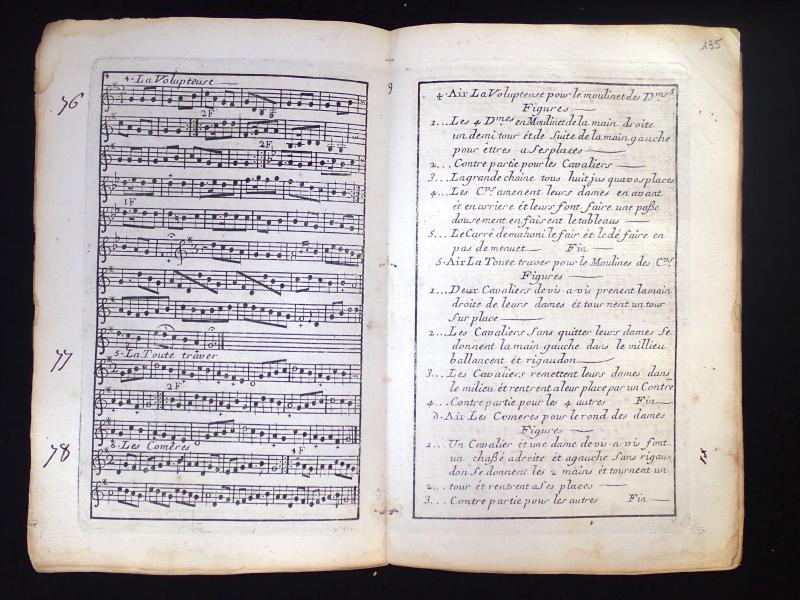 76
4. La Volupteuse
2F
2F
1F
77
5. La Toute traver
2F
78
6. Les Comères
4F
135
4. Air La Volupteuse pour le moulinet des Dmes
Figures
1... Les 4 Dmes en Moulinet de la main droite
un demi tour et de Suite de la main gauche
pour êttres a Ses places
2... Contre partie pour les Cavaliers
3... La grande chaine tous huit jus qua vos places
4... Les Cers amenent leurs dames en avant
et en arriere et leurs font faire une paße
dousement en faisent le tableaus
5... Le Carré de mahoni le fair et le dé faire en
pas de menuet Fin
5. Air La Toute traver pour le Moulines des Cers
Figures
1... Deux Cavaliers de vis-a-vis prenent la main
droite de leurs dames et tour nent un tour
Sur place
2... Les Cavaliers Sans quitter leurs dames Se
donnent la main gauche dans le millieu
ballancent et rigaudon
3... Les Cavaliers remettent leurs dames dans
le milieu et rentrent a leur place par un Contre
4... Contre partie pour les 4 autres Fin
Air Les Comeres pour le rond des dames
Figures
1... Un Cavalier et une dame de vis-a-vis font
un chaßé a droite et a gauche Sans rigau
don Se donnens les 2 mains et tournent un
2... tour et rentrent a Ses places
3... Contre partie pour les autres Fin